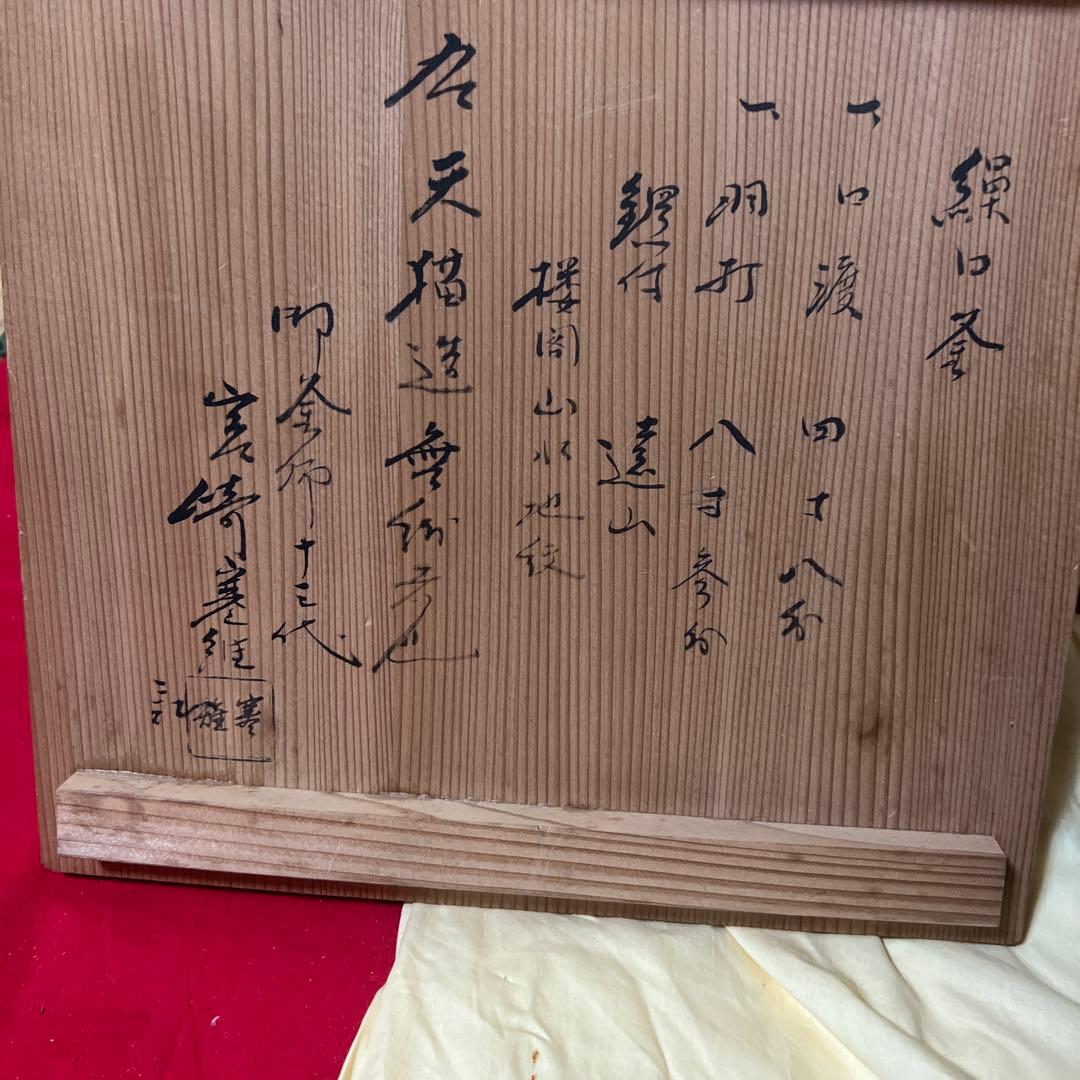 繰口釜
一、口渡 四寸八分
一、羽打 八寸参分
鐶付 遠山
楼閣山水地紋
右天猫造無紛者也
御釜師十三代
宮崎寒雉
寒雉